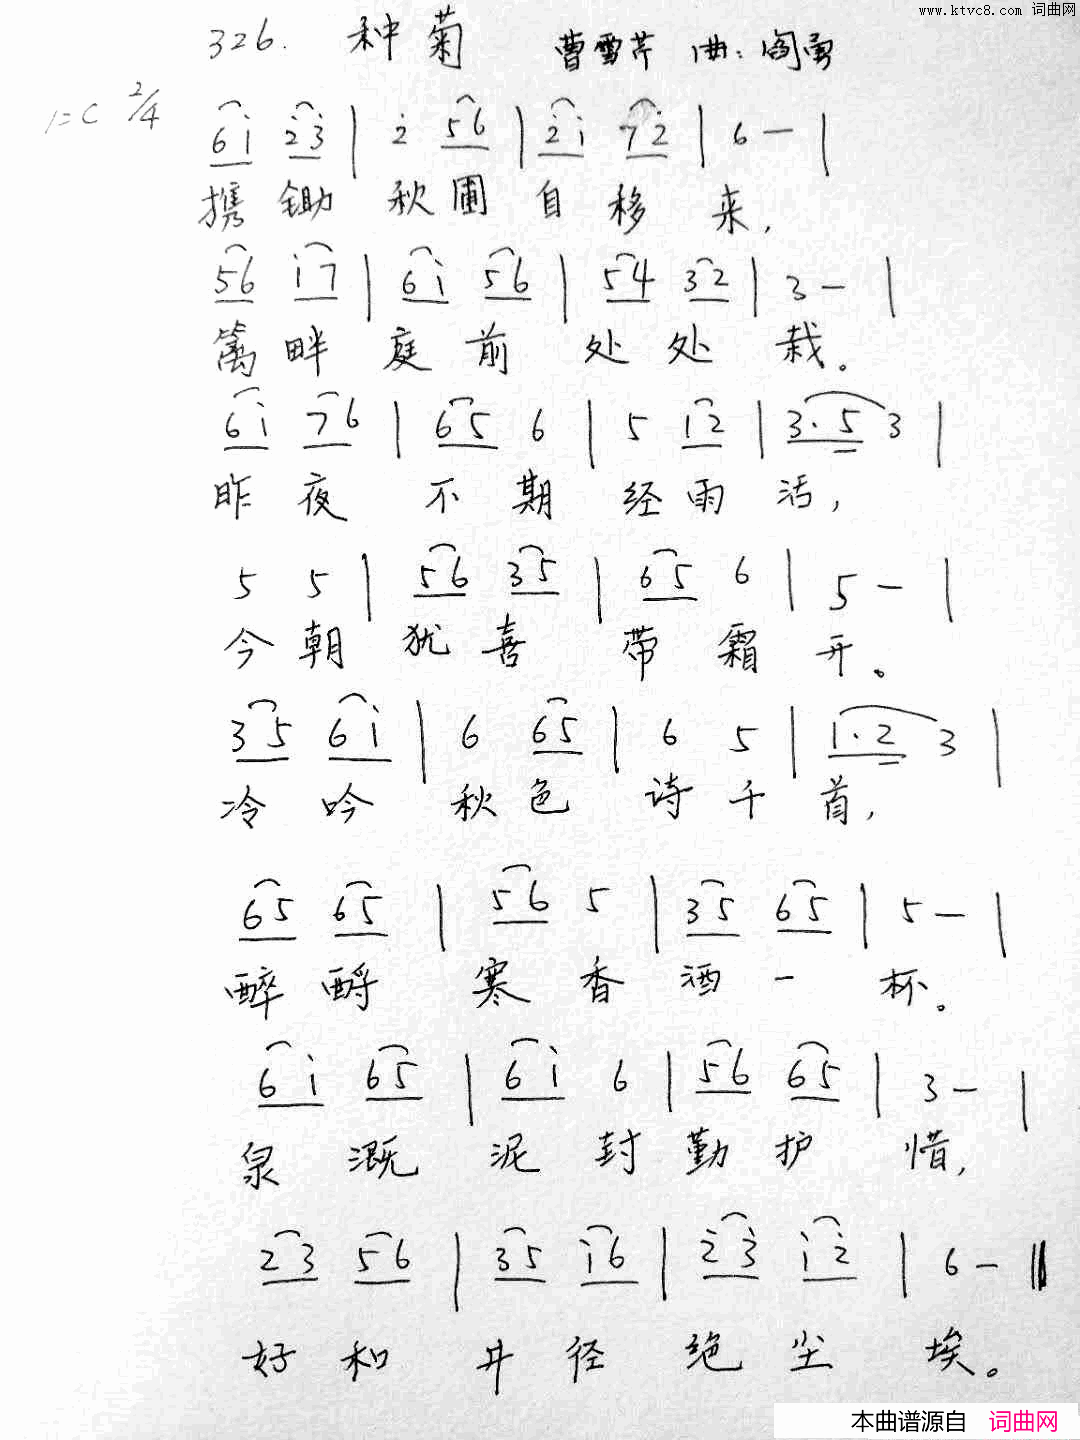 www.ktvc8.com 词曲网
326. 种菊 曹雪芹 曲:阎勇
1=C 2/4
6i 2̇3̇ | 2̇ 56 | 2̇i 72̇ | 6 — |
携锄秋圃自移来,
56 i7 | 6i 56 | 54 32 | 3 — |
篱畔庭前处处栽。
6i 76 | 65 6 | 5 12 | 3·5 3 |
昨夜不期经雨活,
5 5 | 56 35 | 65 6 | 5 — |
今朝犹喜带霜开。
35 6i | 6 65 | 6 5 | 1·2 3 |
冷吟秋色诗千首,
65 65 | 56 5 | 35 65 | 5 — |
醉酹寒香酒一杯。
6i 65 | 6i 6 | 56 65 | 3 — |
泉溉泥封勤护惜,
23 56 | 35 i6 | 2̇3̇ i2̇ | 6 — ‖
好和井径绝尘埃。
本曲谱源自 词曲网